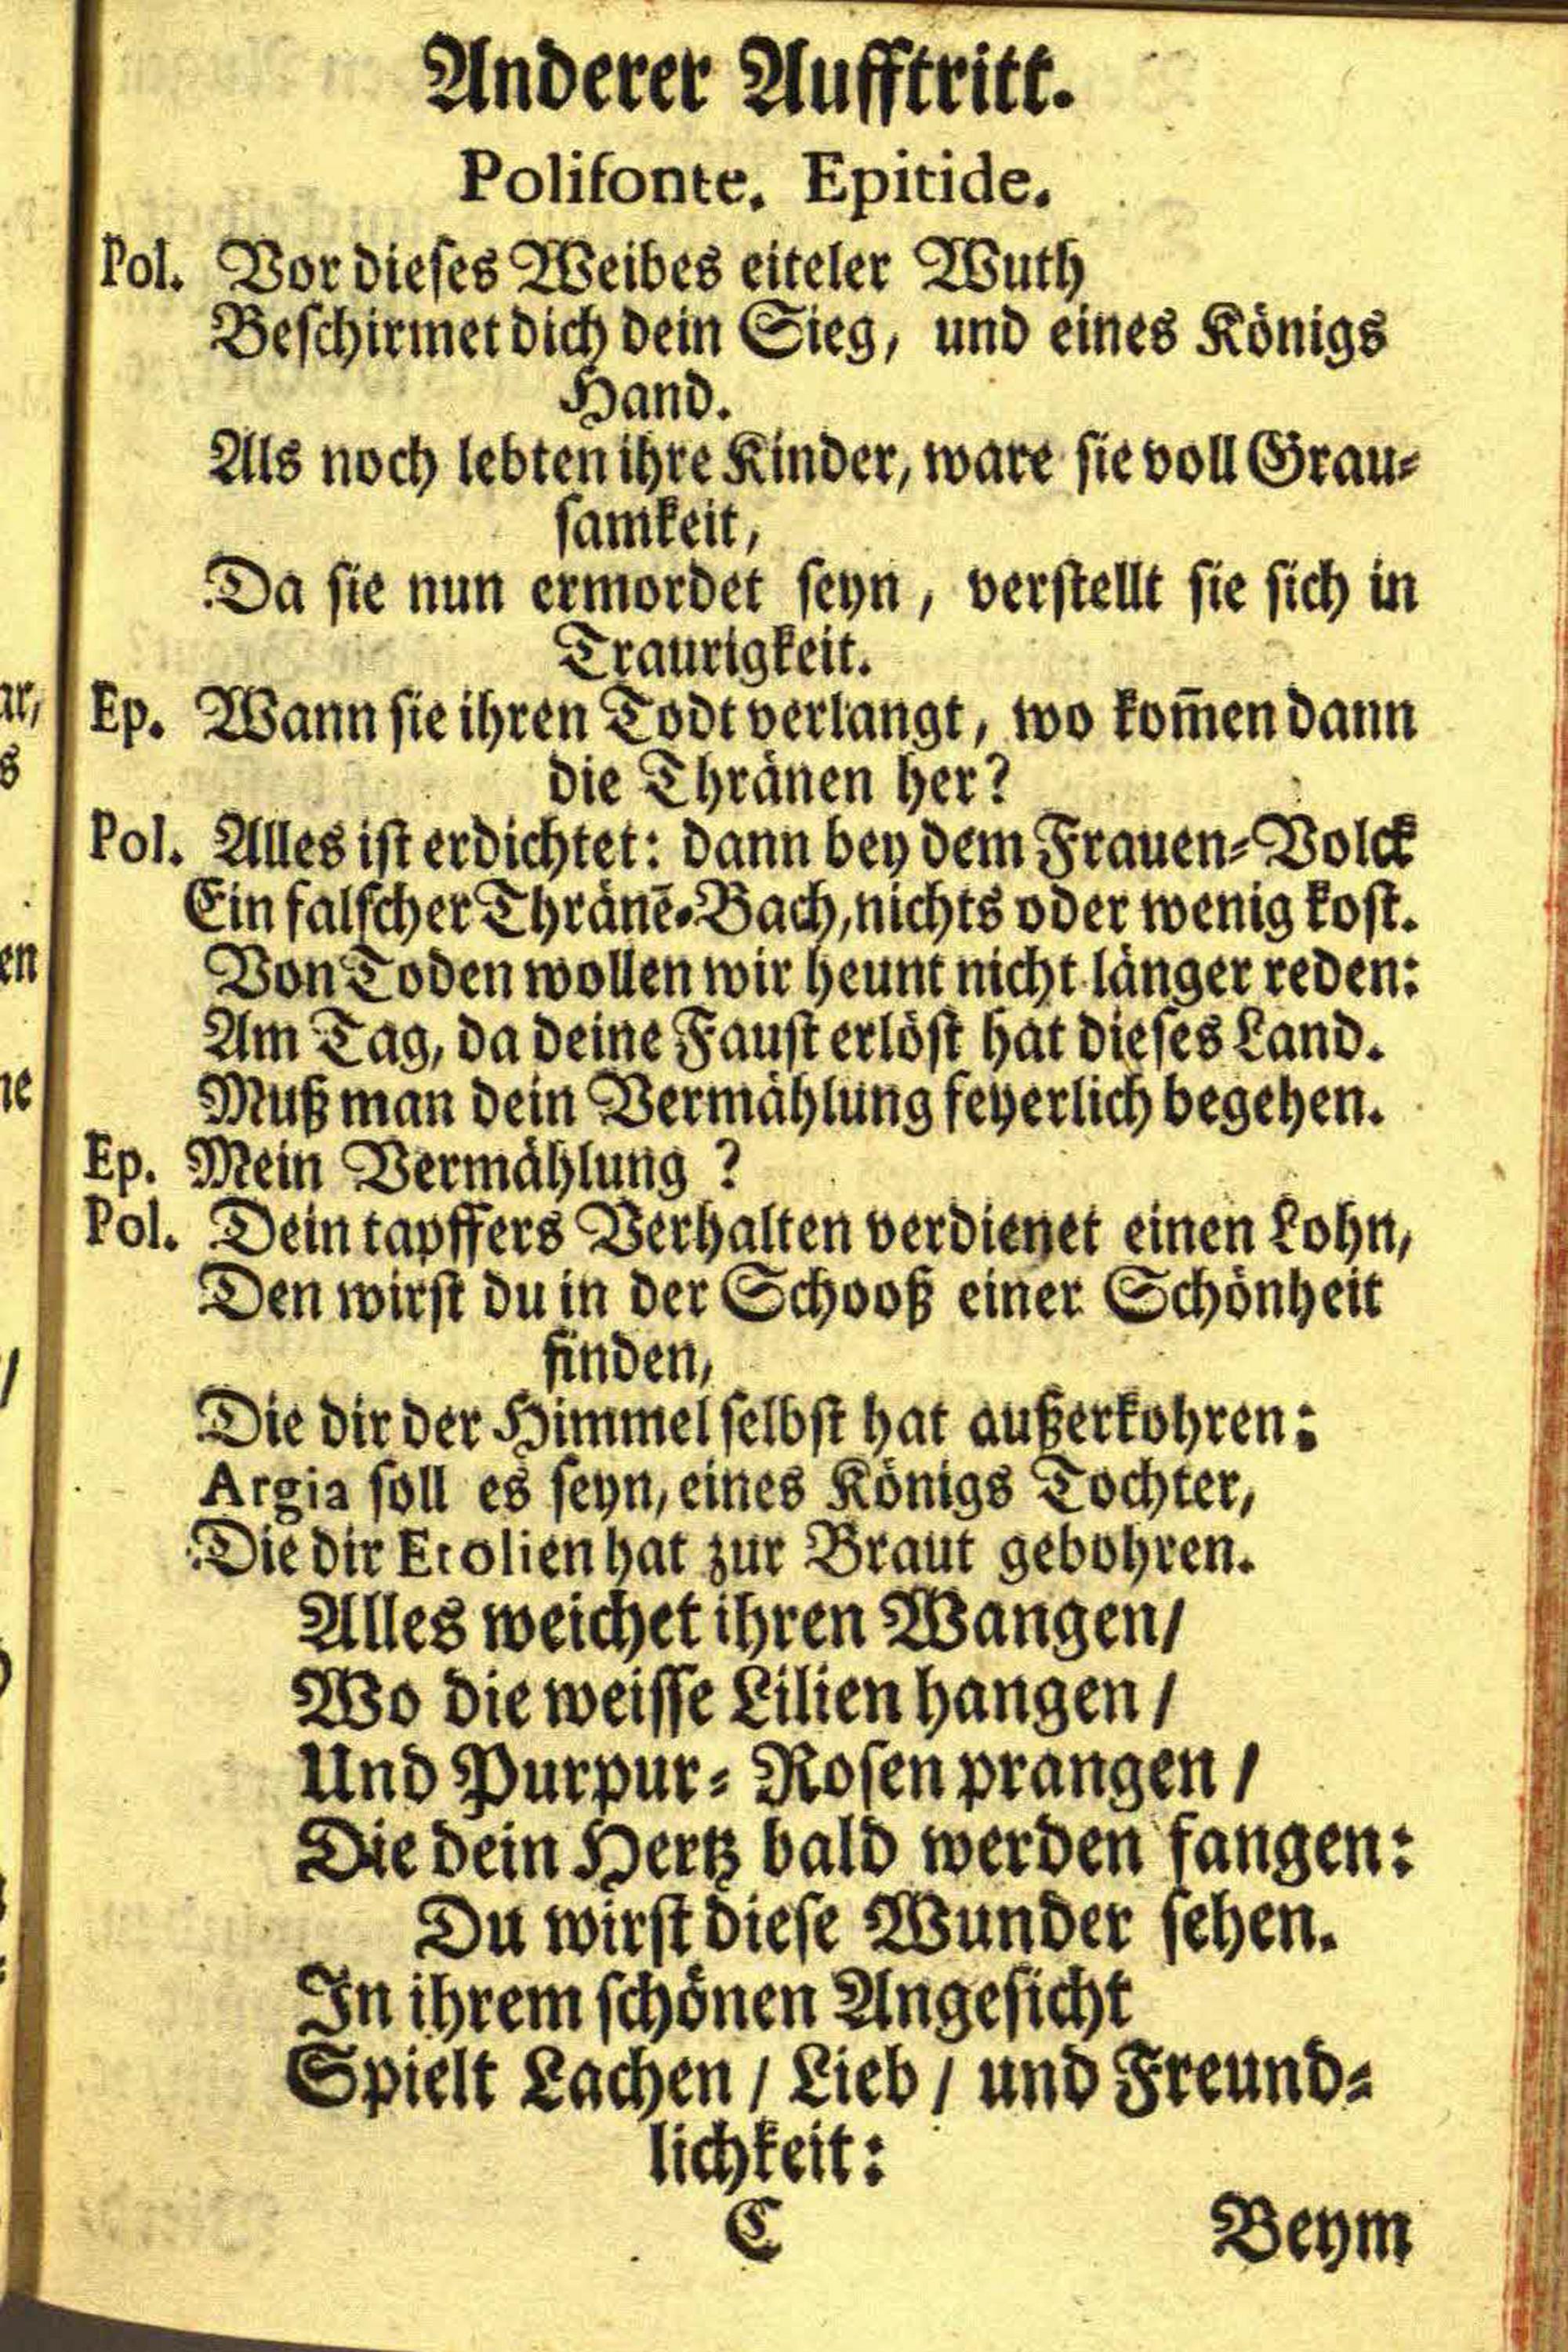 Anderer Aufftritt.
Polifonte. Epitide.
Pol. Vor dieses Weibes eiteler Wuth
Beschirmet dich dein Sieg, und eines Königs
Hand.
Als noch lebten ihre Kinder, ware sie voll Grau-
samkeit,
Da sie nun ermordet seyn, verstellt sie sich in
Traurigkeit.
Ep. Wann sie ihren Todt verlangt, wo kom̄en dann
die Thränen her?
Pol. Alles ist erdichtet: dann bey dem Frauen-Volck
Ein falscher Thränē-Bach, nichts oder wenig kost.
Von Toden wollen wir heunt nicht länger reden:
Am Tag, da deine Faust erlöst hat dieses Land.
Muß man dein Vermählung feyerlich begehen.
Ep. Mein Vermählung ?
Pol. Dein tapffers Verhalten verdienet einen Lohn,
Den wirst du in der Schooß einer Schönheit
finden,
Die dir der Himmel selbst hat außerkohren:
Argia soll es seyn, eines Königs Tochter,
Die dir Etolien hat zur Braut gebohren.
Alles weichet ihren Wangen/
Wo die weisse Lilien hangen /
Und Purpur- Rosen prangen /
Die dein Hertz bald werden fangen:
Du wirst diese Wunder sehen.
In ihrem schönen Angesicht
Spielt Lachen / Lieb / und Freund-
lichkeit:
C Beym